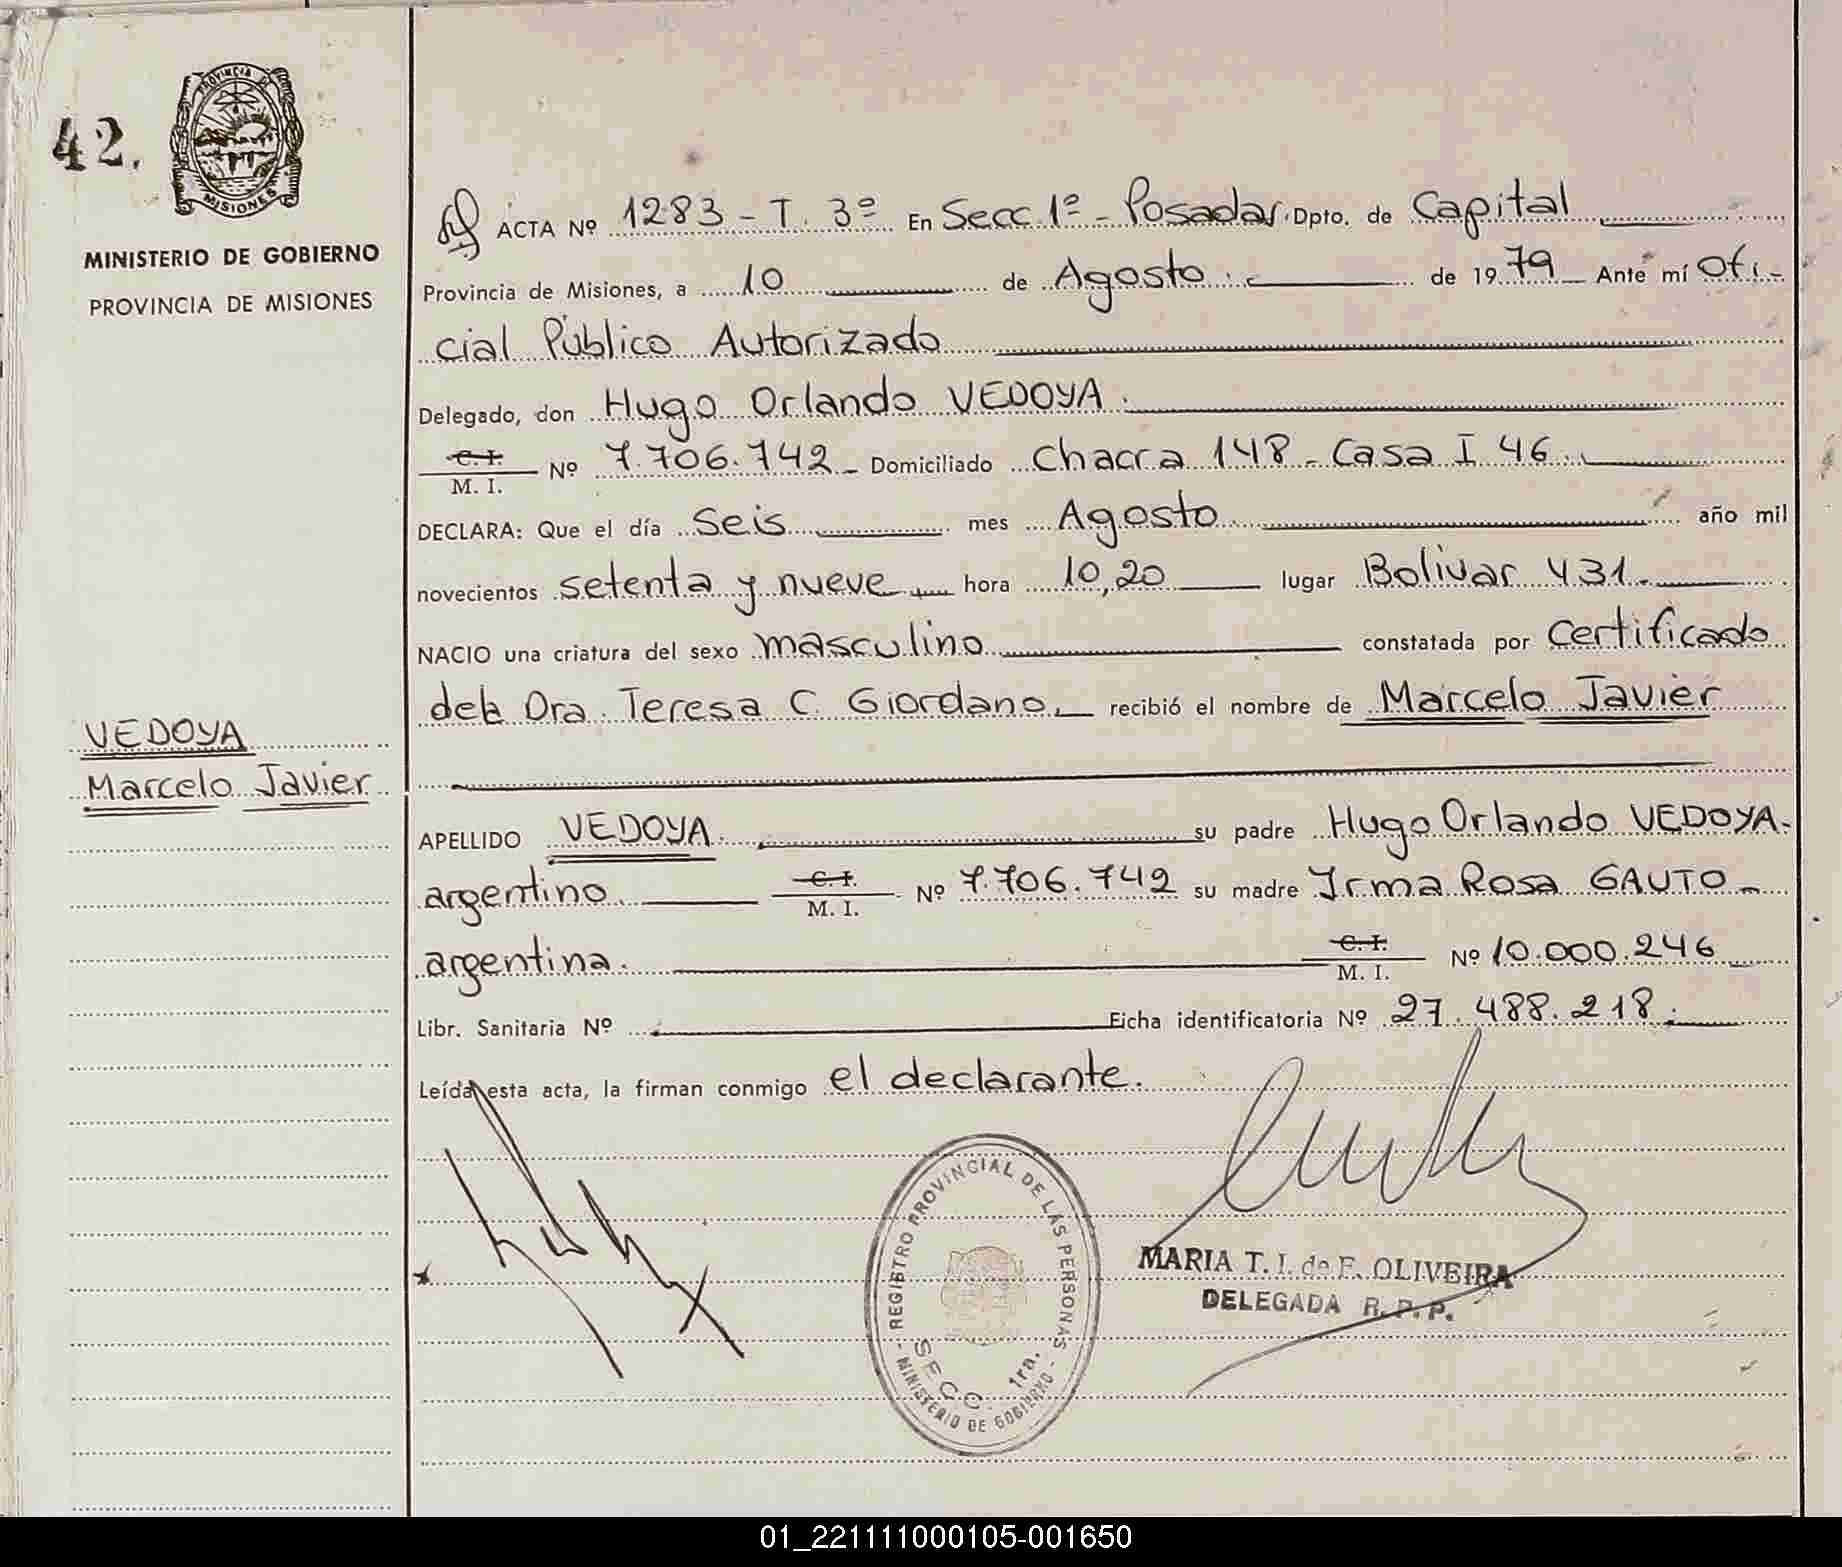 42.
PROVINCIA DE
MISIONES
MINISTERIO DE GOBIERNO
PROVINCIA DE MISIONES
VEDOYA
Marcelo Javier
ACTA Nº 1283 - T. 3º En Secc. 1º - Posadas Dpto. de Capital
Provincia de Misiones, a 10 de Agosto de 1979 Ante mí Ofi-
cial Público Autorizado
Delegado, don Hugo Orlando VEDOYA.
C. I.
M. I. Nº 7.706.742 - Domiciliado Chacra 148 - Casa I 46.
DECLARA: Que el día Seis mes Agosto año mil
novecientos setenta y nueve hora 10,20 lugar Bolivar 431.
NACIO una criatura del sexo masculino constatada por Certificado
dela Dra. Teresa C. Giordano recibió el nombre de Marcelo Javier
APELLIDO VEDOYA. su padre Hugo Orlando VEDOYA.
argentino. C. I.
M. I. Nº 7.706.742 su madre Irma Rosa GAUTO -
argentina. C. I.
M. I. Nº 10.000.246
Libr. Sanitaria Nº Ficha identificatoria Nº 27.488.218.
Leída esta acta, la firman conmigo el declarante.
REGISTRO PROVINCIAL DE LAS PERSONAS
SECC. 1ra.
- MINISTERIO DE GOBIERNO -
MARIA T. I. de F. OLIVEIRA
DELEGADA R. P. P.
01_221111000105-001650